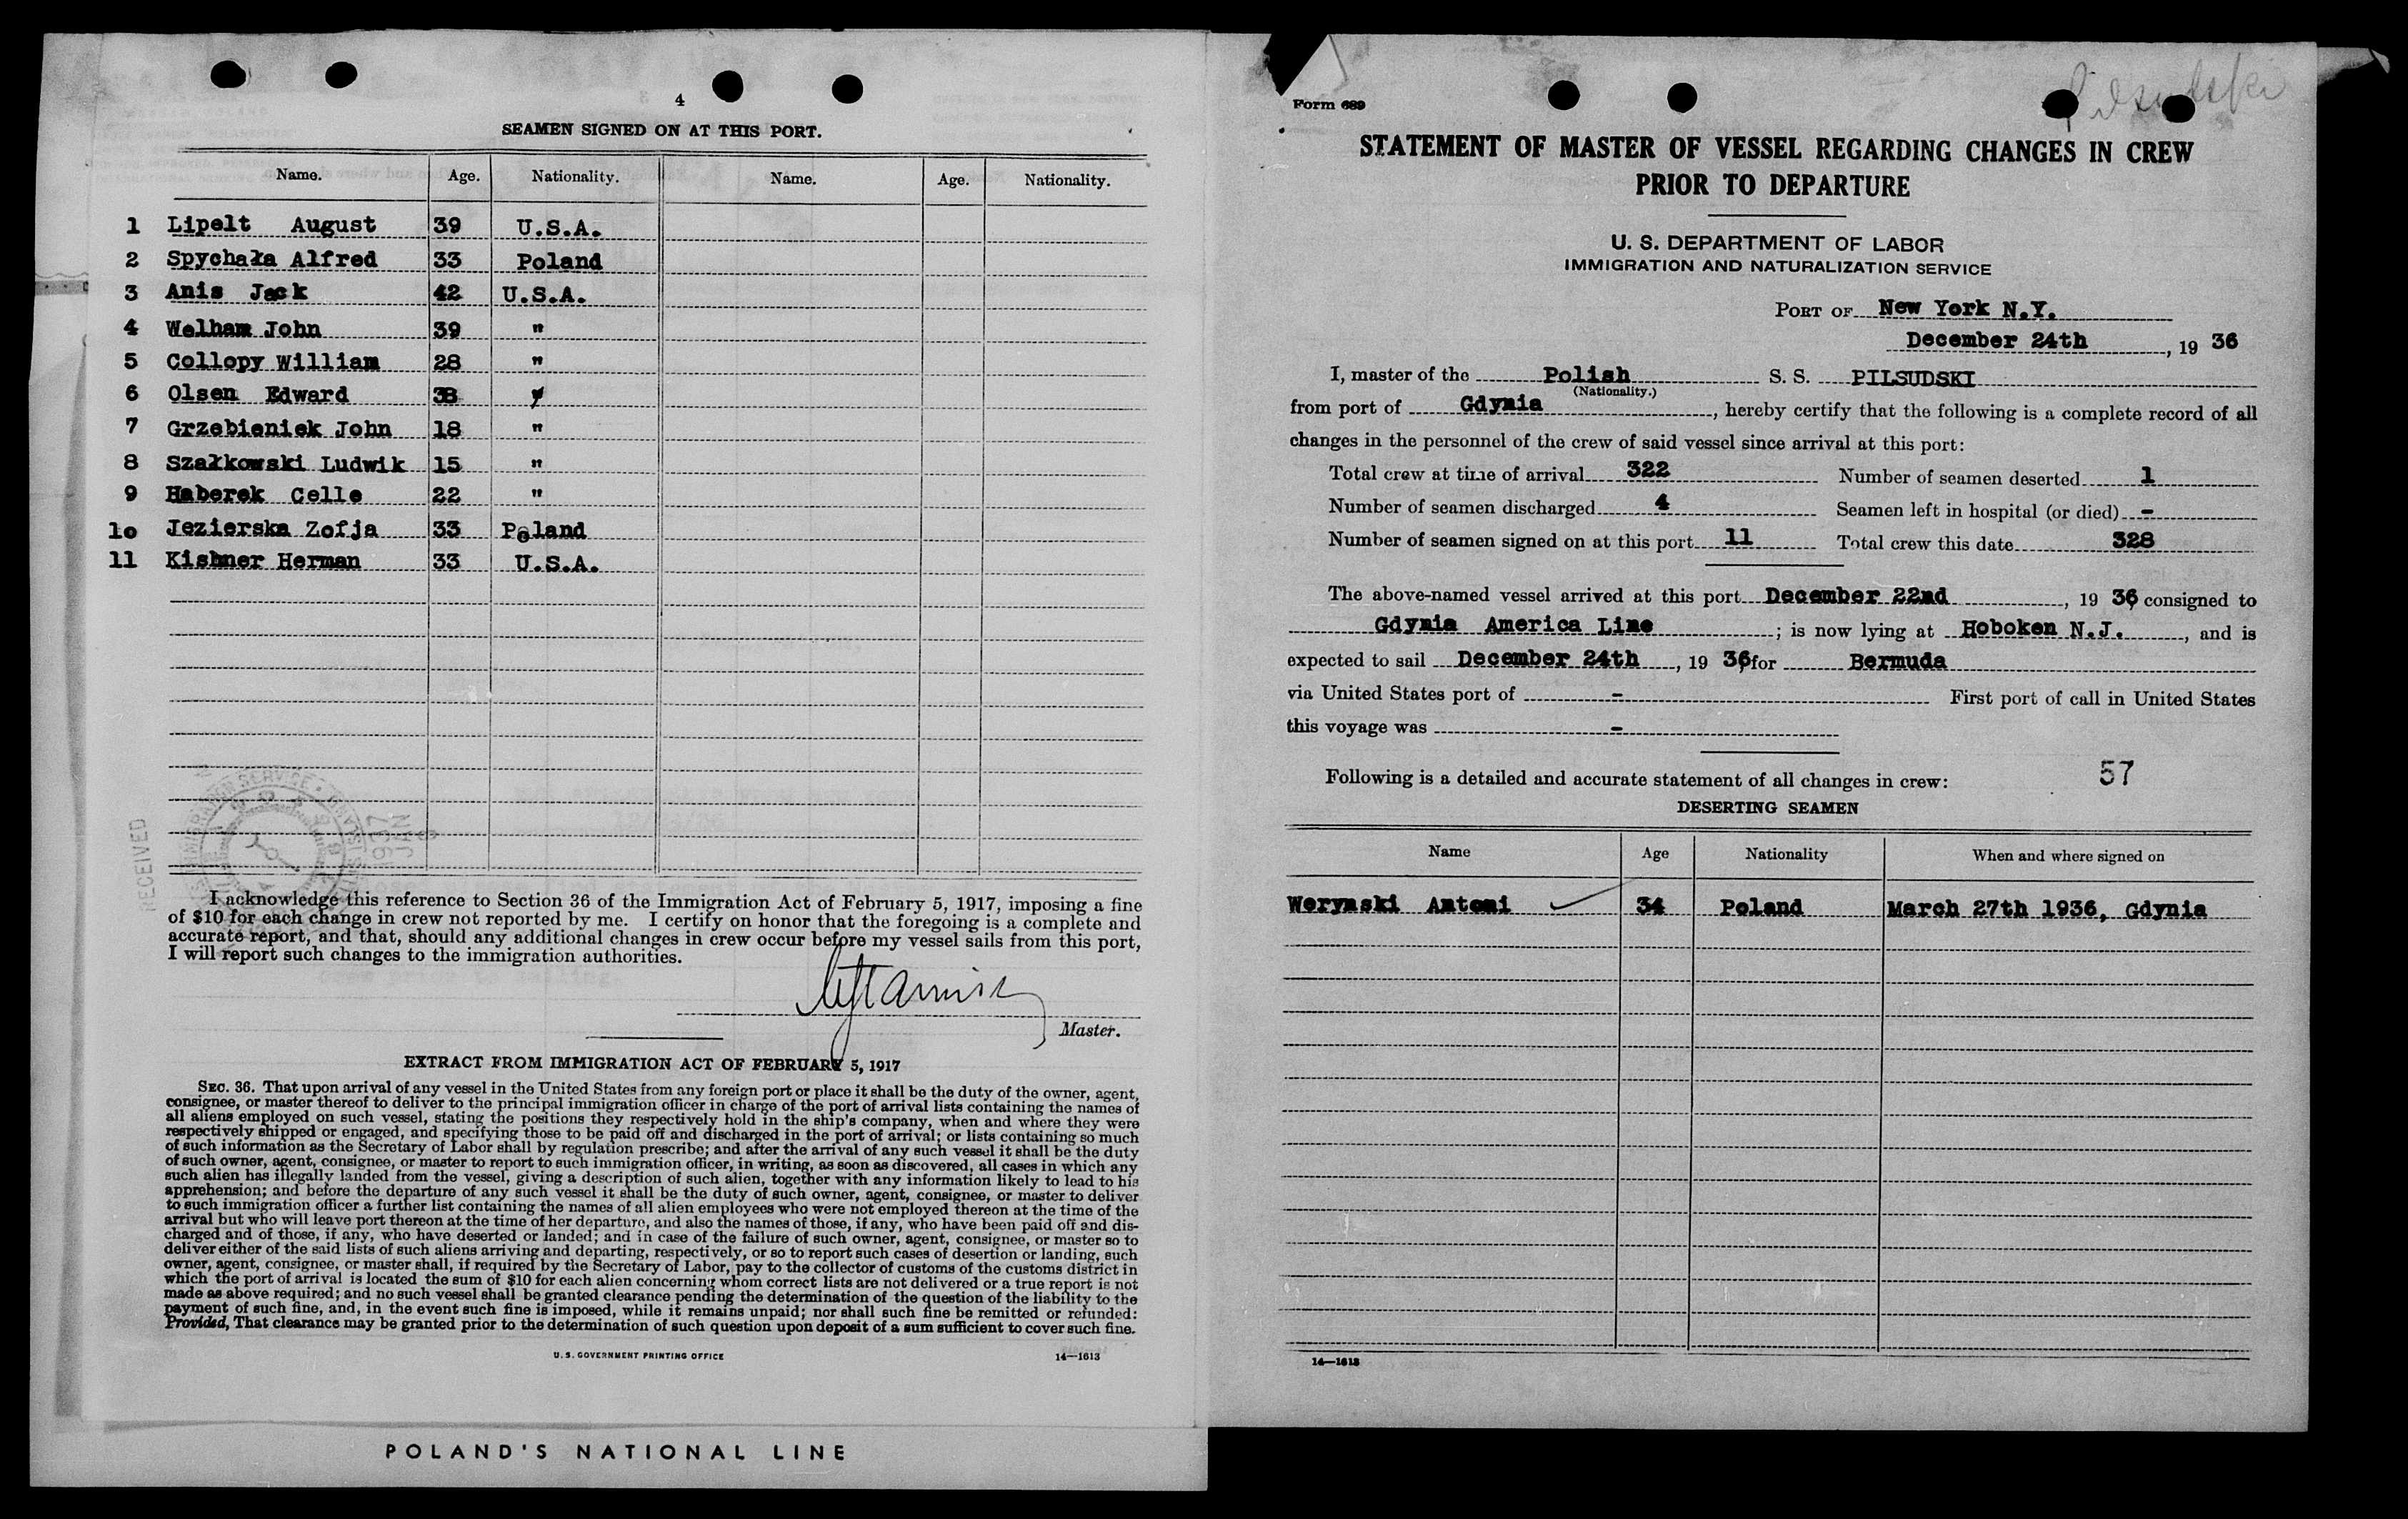 4
SEAMEN SIGNED ON AT THIS PORT.
Name. Age. Nationality. Name. Age. Nationality.
1 Lipelt August 39 U.S.A.
2 Spychała Alfred 33 Poland
3 Anis Jack 42 U.S.A.
4 Welham John 39 "
5 Collopy William 28 "
6 Olsen Edward 38 "
7 Grzebieniek John 18 "
8 Szałkowski Ludwik 15 "
9 Haberek Celle 22 "
10 Jezierska Zofja 33 Poland
11 Kishner Herman 33 U.S.A.
RECEIVED
I acknowledge this reference to Section 36 of the Immigration Act of February 5, 1917, imposing a fine
of $10 for each change in crew not reported by me. I certify on honor that the foregoing is a complete and
accurate report, and that, should any additional changes in crew occur before my vessel sails from this port,
I will report such changes to the immigration authorities.
Master.
EXTRACT FROM IMMIGRATION ACT OF FEBRUARY 5, 1917
SEC. 36. That upon arrival of any vessel in the United States from any foreign port or place it shall be the duty of the owner, agent,
consignee, or master thereof to deliver to the principal immigration officer in charge of the port of arrival lists containing the names of
all aliens employed on such vessel, stating the positions they respectively hold in the ship's company, when and where they were
respectively shipped or engaged, and specifying those to be paid off and discharged in the port of arrival; or lists containing so much
of such information as the Secretary of Labor shall by regulation prescribe; and after the arrival of any such vessel it shall be the duty
of such owner, agent, consignee, or master to report to such immigration officer, in writing, as soon as discovered, all cases in which any
such alien has illegally landed from the vessel, giving a description of such alien, together with any information likely to lead to his
apprehension; and before the departure of any such vessel it shall be the duty of such owner, agent, consignee, or master to deliver
to such immigration officer a further list containing the names of all alien employees who were not employed thereon at the time of the
arrival but who will leave port thereon at the time of her departure, and also the names of those, if any, who have been paid off and dis-
charged and of those, if any, who have deserted or landed; and in case of the failure of such owner, agent, consignee, or master so to
deliver either of the said lists of such aliens arriving and departing, respectively, or so to report such cases of desertion or landing, such
owner, agent, consignee, or master shall, if required by the Secretary of Labor, pay to the collector of customs of the customs district in
which the port of arrival is located the sum of $10 for each alien concerning whom correct lists are not delivered or a true report is not
made as above required; and no such vessel shall be granted clearance pending the determination of the question of the liability to the
payment of such fine, and, in the event such fine is imposed, while it remains unpaid; nor shall such fine be remitted or refunded:
Provided, That clearance may be granted prior to the determination of such question upon deposit of a sum sufficient to cover such fine.
U. S. GOVERNMENT PRINTING OFFICE 14—1613
POLAND'S NATIONAL LINE
Pilsudski
Form 689
STATEMENT OF MASTER OF VESSEL REGARDING CHANGES IN CREW
PRIOR TO DEPARTURE
U. S. DEPARTMENT OF LABOR
IMMIGRATION AND NATURALIZATION SERVICE
PORT OF New York N.Y.
December 24th, 19 36
I, master of the Polish S. S. PILSUDSKI
(Nationality.)
from port of Gdynia, hereby certify that the following is a complete record of all
changes in the personnel of the crew of said vessel since arrival at this port:
Total crew at time of arrival 322 Number of seamen deserted 1
Number of seamen discharged 4 Seamen left in hospital (or died) -
Number of seamen signed on at this port 11 Total crew this date 328
The above-named vessel arrived at this port December 22nd, 19 36, consigned to
Gdynia America Line; is now lying at Hoboken N.J., and is
expected to sail December 24th, 19 36, for Bermuda
via United States port of - First port of call in United States
this voyage was -
Following is a detailed and accurate statement of all changes in crew: 57
DESERTING SEAMEN
Name Age Nationality When and where signed on
Werynski Antoni 34 Poland March 27th 1936, Gdynia
14—1613